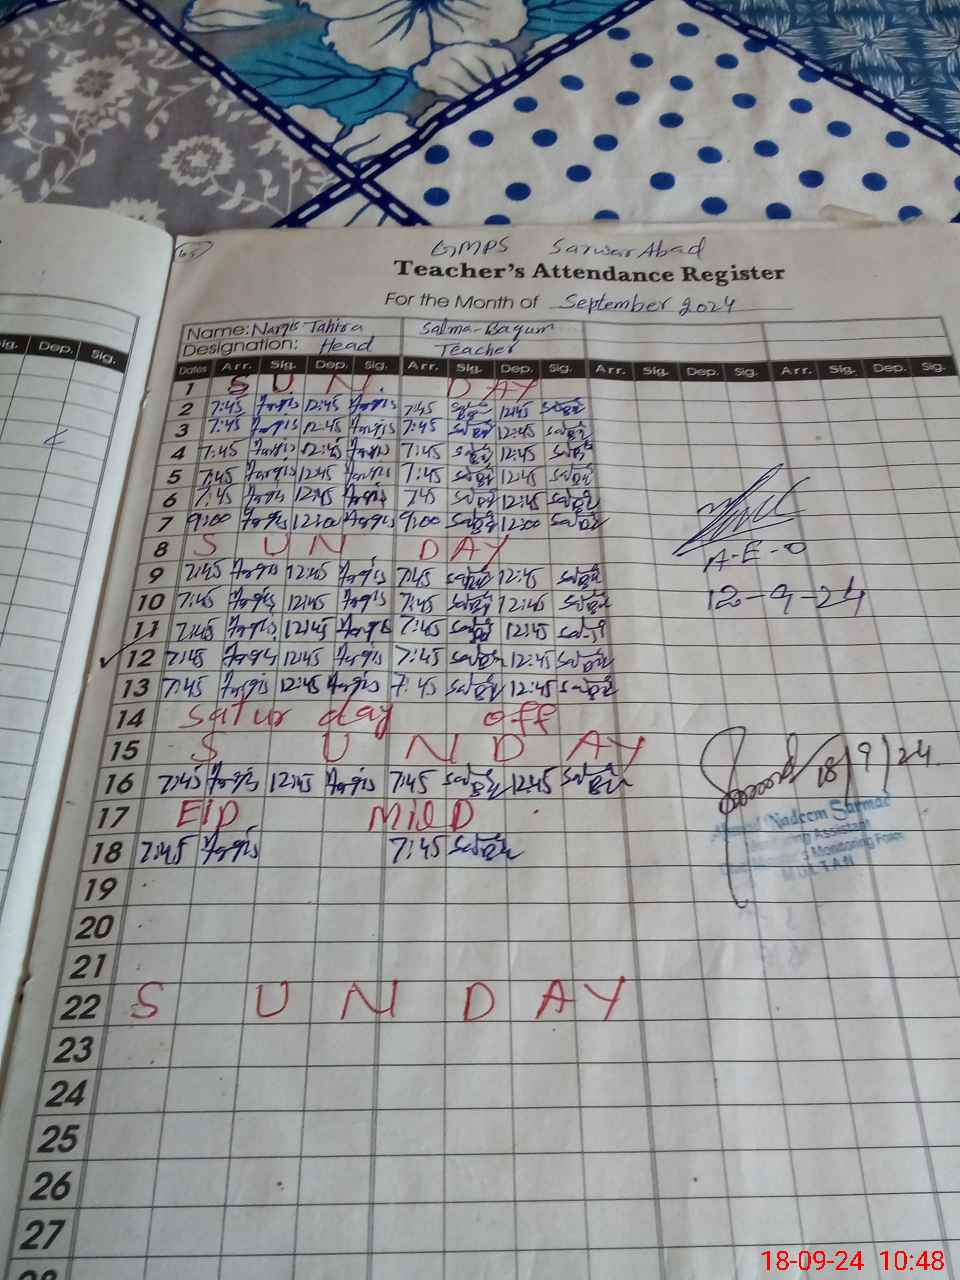 65
GMPS Sarwar Abad
Teacher's Attendance Register
For the Month of September 2024
Name: Nargis Tahira Salma Bagum
Designation: Head Teacher
Sig. Dep. Sig.
Dates Arr. Sig. Dep. Sig. Arr. Sig. Dep. Sig. Arr. Sig. Dep. Sig. Arr. Sig. Dep. Sig.
1 SUN DAY
2 7:45 Nargis 12:45 Nargis 7:45 12:45
3 7:45 Nargis 12:45 Nargis 7:45 12:45
4 7:45 Nargis 12:45 Nargis 7:45 12:45
5 7:45 Nargis 12:45 Nargis 7:45 12:45
6 7:45 Nargis 12:45 Nargis 7:45 12:45
7 9:00 Nargis 12:00 Nargis 9:00 12:00
8 SUN DAY
A-E-O
9 7:45 Nargis 12:45 Nargis 7:45 12:45
10 7:45 Nargis 12:45 Nargis 7:45 12:45
12-9-24
11 7:45 Nargis 12:45 Nargis 7:45 12:45
12 7:45 Nargis 12:45 Nargis 7:45 12:45
13 7:45 Nargis 12:45 Nargis 7:45 12:45
14 Satur day off
15 SUNDAY
16 7:45 Nargis 12:45 Nargis 7:45 12:45
18/9/24
17 EID MilD
Nadeem Sarmad
Assistant
18 7:45 Nargis 7:45
Monitoring Force
MULTAN
19
20
21
22 SUNDAY
23
24
25
26
27
28
18-09-24 10:48